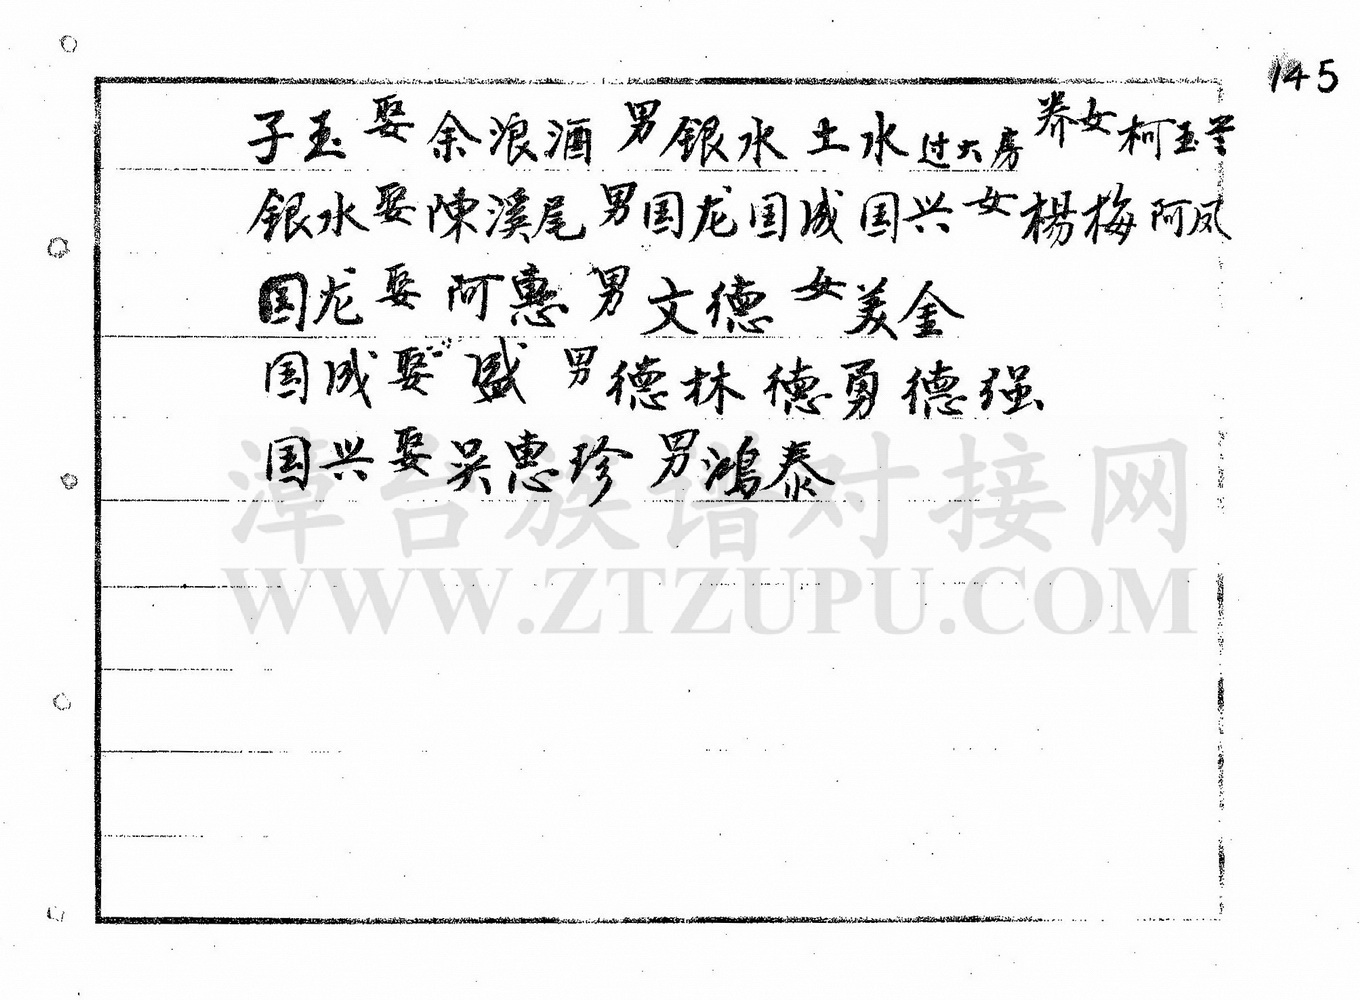 145
子玉娶余浪酒男銀水土水过大房养女柯玉兰
銀水娶陳溪尾男国龙国成国兴女楊梅阿凤
国龙娶阿惠男文德女美金
国成娶盛男德林德勇德强
国兴娶吴惠珍男鴻泰
漳台族谱对接网
WWW.ZTZUPU.COM